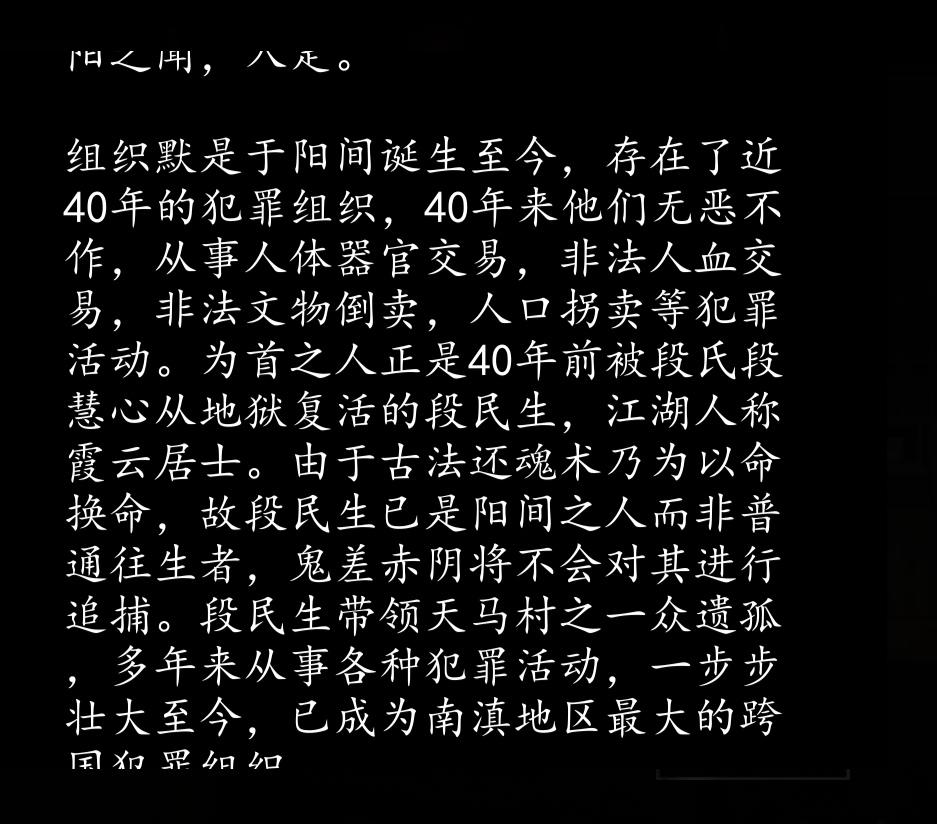 组织默是于阳间诞生至今，存在了近
40年的犯罪组织，40年来他们无恶不
作，从事人体器官交易，非法人血交
易，非法文物倒卖，人口拐卖等犯罪
活动。为首之人正是40年前被段氏段
慧心从地狱复活的段民生，江湖人称
霞云居士。由于古法还魂术乃为以命
换命，故段民生已是阳间之人而非普
通往生者，鬼差赤阴将不会对其进行
追捕。段民生带领天马村之一众遗孤
，多年来从事各种犯罪活动，一步步
壮大至今，已成为南滇地区最大的跨
国犯罪组织